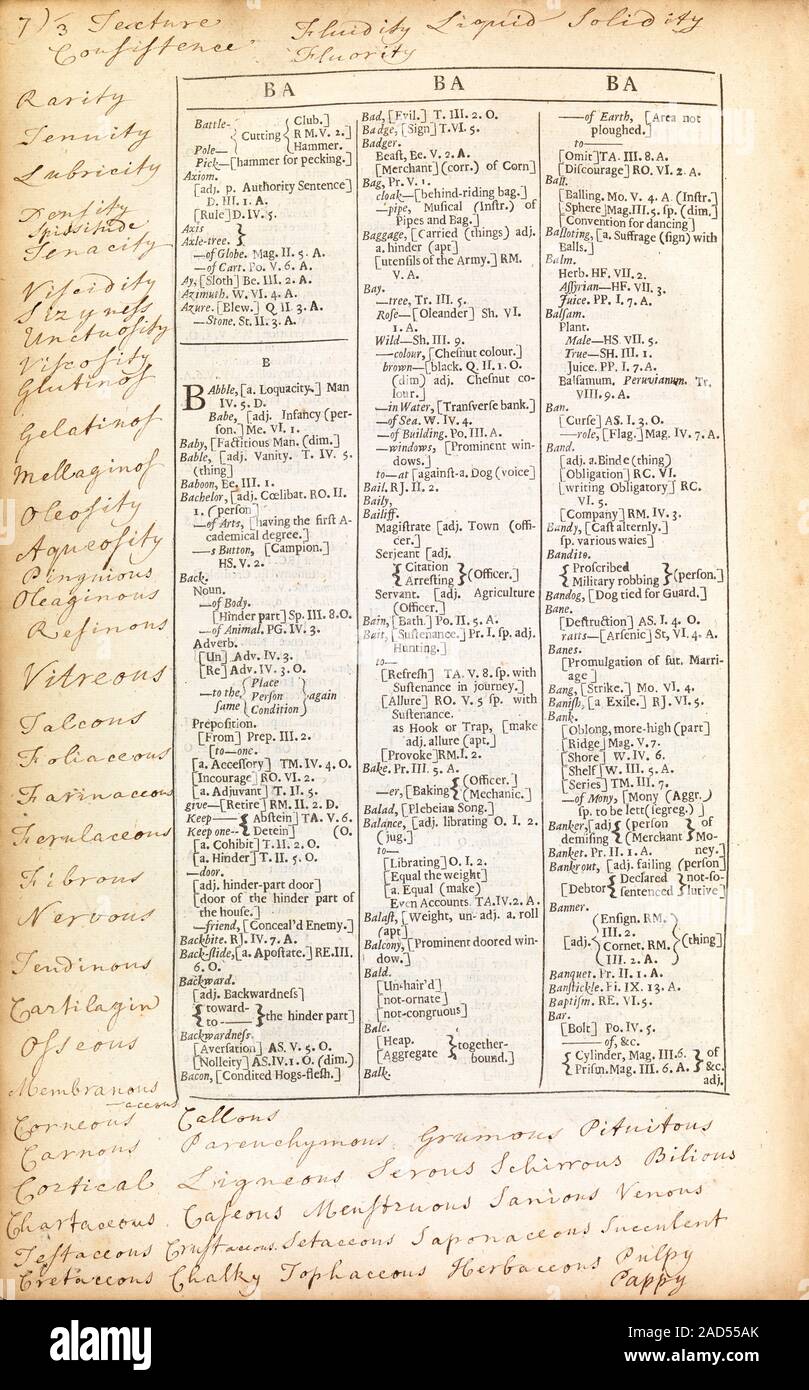 7) 3 Texture Fluidity Liquid Solidity
Consistence Fluority
Rarity
Tenuity
Lubricity
Density
Spissitude
Tenacity
Viscidity
Sizyness
Unctuosity
Viscosity
Glutinos
Gelatinos
Mellaginos
Oleosity
Aqueosity
Pinguious
Oleaginous
Resinous
Vitreous
Talcous
Foliaceous
Farinaceous
Ferulaceous
Fibrous
Nervous
Tendinous
Cartilagin
Osseous
Membranous
—aceous
Corneous
Carnous
Cortical
Chartaceous
Testaceous
Cretaceous
BA
Battle- Club.]
Cutting R M. V. 2.]
Pole— Hammer.]
Pick—[hammer for pecking.]
Axiom.
[adj. p. Authority Sentence]
D. III. 1. A.
[Rule] D. IV. 5.
Axis
Axle-tree.
—of Globe. Mag. II. 5. A.
—of Cart. Po. V. 6. A.
Ay, [Sloth] Be. III. 2. A.
Azimuth. W. VI. 4. A.
Azure. [Blew.] Q. II. 3. A.
—Stone. St. II. 3. A.
B
BAbble, [a. Loquacity.] Man
IV. 5. D.
Babe, [adj. Infancy (per-
son.] Me. VI. 1.
Baby, [Factitious Man. (dim.]
Bable, [adj. Vanity. T. IV. 5.
(thing]
Baboon, Ee. III. 1.
Bachelor, [adj. Cœlibat. RO. II.
1. (person]
—of Arts, [having the first A-
cademical degree.]
—s Button, [Campion.]
HS. V. 2.
Back.
Noun.
—of Body.
[Hinder part] Sp. III. 8. O.
—of Animal. PG. IV. 3.
Adverb.
[Un] Adv. IV. 3.
[Re] Adv. IV. 3. O.
Place
—to the, Person again
same Condition
Preposition.
[From] Prep. III. 2.
[to—one.
[a. Accessory] TM. IV. 4. O.
[Incourage] RO. VI. 2.
[a. Adjuvant] T. II. 5.
give—[Retire] RM. II. 2. D.
Keep— Abstein] TA. V. 6.
Keep one-- Detein] (O.
[a. Cohibit] T. II. 2. O.
[a. Hinder] T. II. 5. O.
—door.
[adj. hinder-part door]
[door of the hinder part of
the house.]
—friend, [Conceal'd Enemy.]
Backbite. RJ. IV. 7. A.
Back-slide, [a. Apostate.] RE. III.
6. O.
Backward.
[adj. Backwardness]
toward-
to— the hinder part]
Backwardness.
[Aversation] AS. V. 5. O.
[Nolleity] AS. IV. 1. O. (dim.)
Bacon, [Condited Hogs-flesh.]
BA
Bad, [Evil.] T. III. 2. O.
Badge, [Sign] T. VI. 5.
Badger.
Beast, Ee. V. 2. A.
[Merchant] (corr.) of Corn]
Bag, Pr. V. 1.
cloak—[behind-riding bag.]
—pipe, Musical (Instr.) of
Pipes and Bag.]
Baggage, [Carried (things) adj.
a. hinder (apt]
[utensils of the Army.] RM.
V. A.
Bay.
—tree, Tr. III. 5.
Rose—[Oleander] Sh. VI.
1. A.
Wild—Sh. III. 9.
—colour, [Chesnut colour.]
brown—[black. Q. II. 1. O.
(dim) adj. Chesnut co-
lour.]
—in Water, [Transverse bank.]
—of Sea. W. IV. 4.
—of Building. Po. III. A.
—windows, [Prominent win-
dows.]
to—at [against-a. Dog (voice]
Bail. RJ. II. 2.
Baily,
Bailiff.
Magistrate [adj. Town (offi-
cer.]
Serjeant [adj.
Citation
Arresting (Officer.]
Servant. [adj. Agriculture
(Officer.]
Bain, [Bath.] Po. II. 5. A.
Bait, [Sustenance.] Pr. I. sp. adj.
Hunting.]
to—
[Refresh] TA. V. 8. sp. with
Sustenance in journey.]
[Allure] RO. V. 5 sp. with
Sustenance.
as Hook or Trap, [make
adj. allure (apt.]
[Provoke] RM. I. 2.
Bake. Pr. III. 5. A.
—er, [Baking (Officer.]
(Mechanic.]
Balad, [Plebeian Song.]
Balance, [adj. librating O. I. 2.
(jug.]
to—
[Librating] O. I. 2.
[Equal the weight]
[a. Equal (make)
Even Accounts. TA. IV. 2. A.
Balast, [Weight, un- adj. a. roll
(apt]
Balcony, [Prominent doored win-
dow.]
Bald.
[Un-hair'd]
[not-ornate]
[not-congruous]
Bale.
[Heap. together-
[Aggregate bound.]
Balk.
BA
—of Earth, [Area not
ploughed.]
to—
[Omit] TA. III. 8. A.
[Discourage] RO. VI. 2. A.
Ball.
[Balling. Mo. V. 4. A (Instr.]
[Sphere] Mag. III. 5. sp. (dim.]
[Convention for dancing]
Balloting, [a. Suffrage (sign) with
Balls.]
Balm.
Herb. HF. VII. 2.
Assyrian—HF. VII. 3.
Juice. PP. I. 7. A.
Balsam.
Plant.
Male—HS. VII. 5.
True—SH. III. 1.
Juice. PP. I. 7. A.
Balsamum. Peruvianum. Tr.
VIII. 9. A.
Ban.
[Curse] AS. I. 3. O.
—role, [Flag.] Mag. IV. 7. A.
Band.
[adj. a. Binde (thing)
[Obligation] RC. VI.
[writing Obligatory] RC.
VI. 5.
[Company] RM. IV. 3.
Bandy, [Cast alternly.]
sp. various waies]
Bandite.
Proscribed
Military robbing (person.]
Bandog, [Dog tied for Guard.]
Bane.
[Destruction] AS. I. 4. O.
ratts—[Arsenic] St. VI. 4. A.
Banes.
[Promulgation of fut. Marri-
age]
Bang, [Strike.] Mo. VI. 4.
Banish, [a Exile.] RJ. VI. 5.
Bank.
[Oblong, more-high (part]
[Ridge] Mag. V. 7.
[Shore] W. IV. 6.
[Shelf] W. III. 5. A.
[Series] TM. III. 7.
—of Mony, [Mony (Aggr.)
sp. to be lett (segreg.)]
Banker, [adj (person of
demising (Merchant Mo-
Banket. Pr. II. 1. A. ney.]
Bankrout, [adj. failing (person]
Declared not-so-
[Debtor sentenced lutive]
Banner.
(Ensign. RM.
III. 2.
[adj. Cornet. RM. (thing]
III. 2. A.
Banquet. Pr. II. 1. A.
Banstickle. Fi. IX. 13. A.
Baptism. RE. VI. 5.
Bar.
[Bolt] Po. IV. 5.
—of, &c.
Cylinder, Mag. III. 6. of
Prism. Mag. III. 6. A. &c.
adj.
Callous
Parenchymous Grumous Pituitous
Ligneous Serous Schirrous Bilious
Caseous Menstruous Sanious Venous
Crustaceous. Setaceous Saponaceous Succulent
Chalky Tophaceous Herbaceous Pulpy
Pappy
alamy
Image ID: 2AD55AK
www.alamy.com